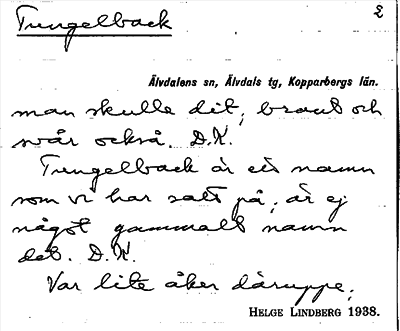 Tungelback 2
Älvdalens sn, Älvdals tg, Kopparbergs län.
man skulle dit, brant och
svår också. D.K.
Tungelback är ett namn
som vi har satt på, är ej
något gammalt namn
det. D.K.
Var lite åker däruppe,
HELGE LINDBERG 1938.